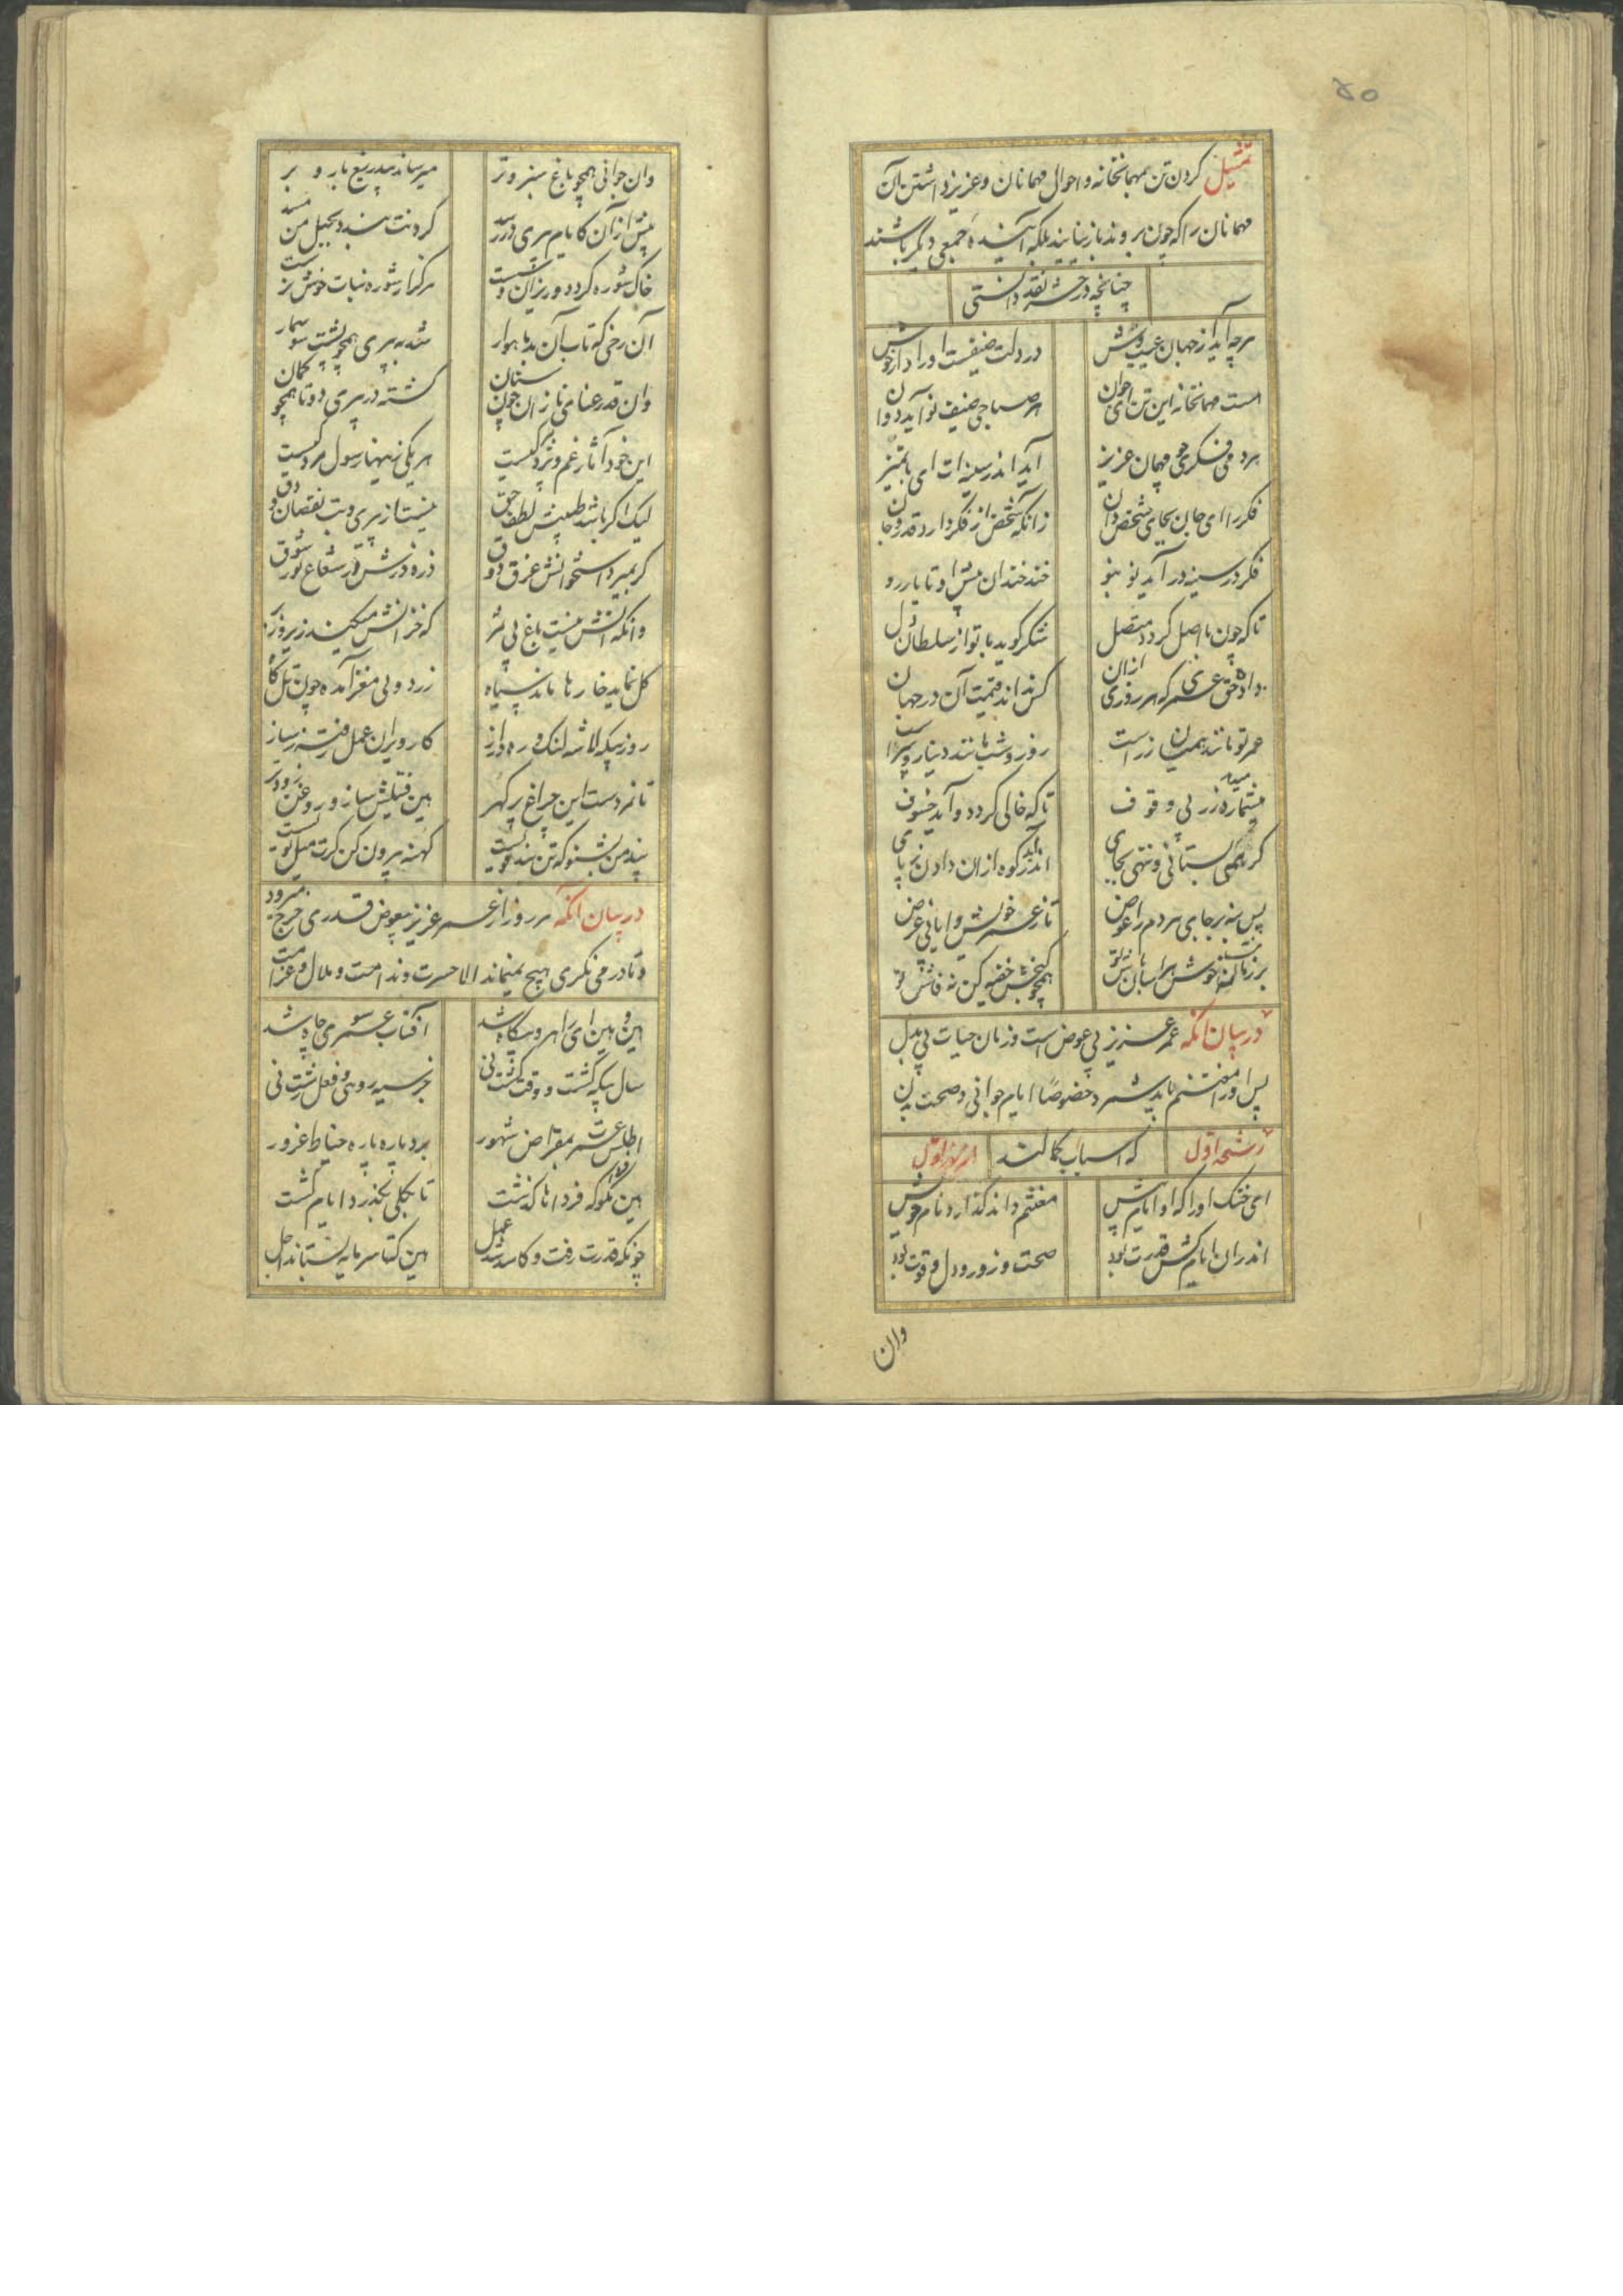 ۴۵
تمثیل کردن تن بمهمانخانه و احوال مهمانان و عزیز داشتن آن
مهمانان را که چون بروند باز نیایند بلکه آینده جمعی دیگر باشند
چنانچه در نقد دانستی
هرچه آید از جهان غیب‌وش در دلت ضیفست او را دار خوش
هست مهمانخانه این تن ای جوان هر صباحی ضیف نو آید دوان
هر دمی فکری چو مهمان عزیز آید اندر سینه‌ات ای با تمیز
فکر را ای جان بجای شخص دان زانکه شخص از فکر دارد قدر و جان
فکر در سینه در آید نو بنو خند خندان پیش او تا باز رو
تاکه چون با اصل گردد متصل شکر گوید با تو از سلطان دل
داد حق عمری که هر روزی ازان کس نداند قیمت آن در جهان
عمر تو مانند همیان زر است روز و شب مانند دینار
میشمارد میدهد زر بی وقوف تا که خالی گردد و آید خسوف
گر ز که بستانی و ننهی بجای اندر آید کوه ازان دادن ز پای
پس بنه بر جای هر دم را عوض تا ز عمر خویش وایابی غرض
همچو گنجش خفیه کن نه فاش تو
در بیان آنکه عمر عزیز بی عوض است و زمان حیات بی بدل
پس او را مغتنم باید شمرد خصوصا ایام جوانی و صحت بدن
رشحه اول که اسباب کمالند از نهر اول
ای خنک او را که او ایام پیش مغتنم داند گذارد نام خویش
اندران ایام کش قدرت بود صحت و زور و دل و قوت بود
وان
وان جوانی همچو باغ سبز و تر میرساند بیدریغ بار و بر
پیش ازان کایام پیری در رسد گردنت بندد بحبل من مسد
خاک شوره گردد و ریزان و سست هرگز از شوره نبات خوش نرست
آن رخی که تاب آن بد ماهوار شد به پیری همچو پشت سوسمار
وان قد رعنا می نازان چون سنان گشته در پیری دوتا همچو کمان
این خود آثار غم و پژمردگیست هر یکی زینها رسول مردگیست
لیک اگر باشد طبیبش لطف حق نیست از پیری و تب نقصان و دق
گر بمیرد استخوانش غرق ذوق ذره ذره‌ش در شعاع نور شوق
وانکه آنش نیست باغ بی ثمر که خزانش میکند زیر و زبر
گل نماید خارها ماند سیاه زرد و بی مغز آمده چون تل کاه
روز بیگه لاشه لنگ و ره دراز کار ویران عمل رفته ز ساز
تا نمردست این چراغ پر گهر هین فتیلش ساز و روغن زودتر
پند من بشنو که تن بند قویست کهنه بیرون کن گرت میل نویست
در بیان آنکه هر روز از عمر عزیز بعوض قدری خرج میرود
و تا در می نگری هیچ نمیماند الا حسرت و ندامت و ملال و غرامت
هین و هین ای راه رو بیگاه شد آفتاب عمر سوی چاه شد
سال بیگه گشت و وقت کشت نی جز سیه رویی و فعل زشت نی
اطلس عمرت بمقراض شهور برد پاره پاره خیاط غرور
هین مگو فردا که فرداها گذشت تا بکلی نگذرد ایام کشت
چونکه قدرت رفت و کاسد شد عمل هین که تا سرمایه نستاند اجل